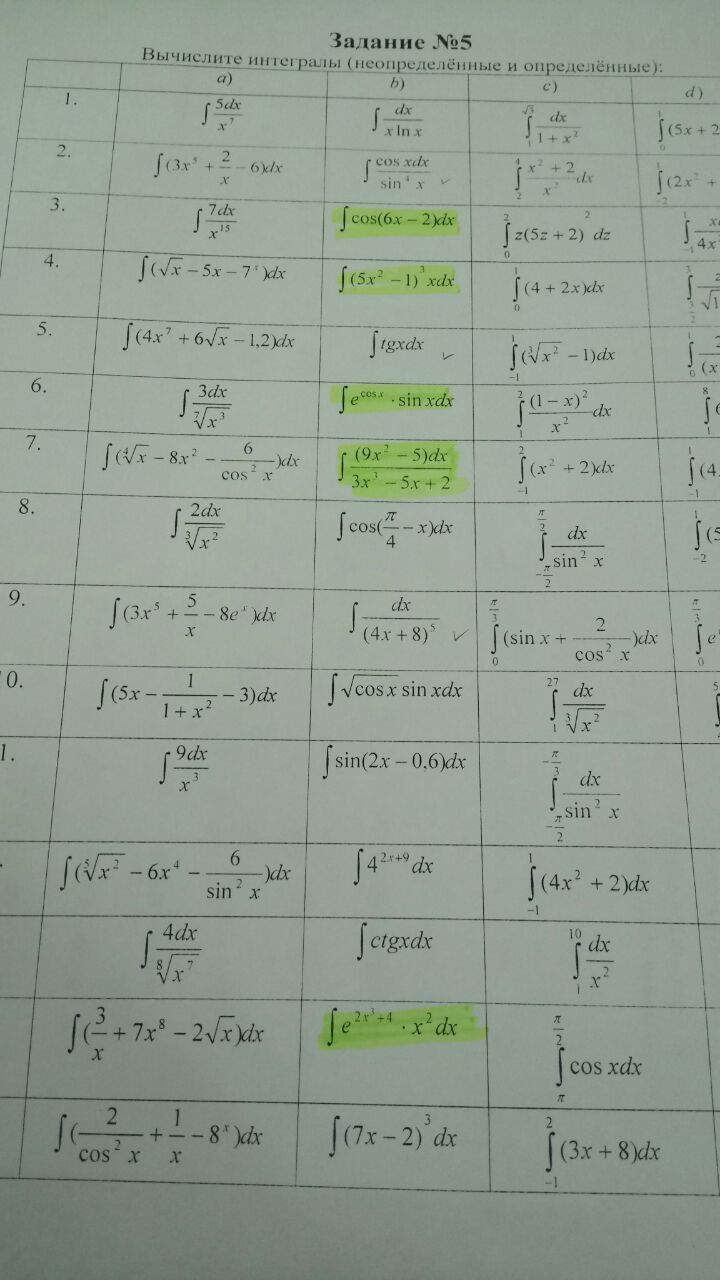 Задание №5
Вычислите интегралы (неопределённые и определённые):
a) b) c) d)
1. ∫ 5dx/x⁷ ∫ dx/(x ln x) ∫₁^√3 dx/(1 + x²) ∫₀¹ (5x + 2
2. ∫(3x⁵ + 2/x − 6)dx ∫ cos xdx/sin⁴ x ∫₂⁴ (x² + 2)/x² dx ∫₋₂¹ (2x² +
3. ∫ 7dx/x¹⁵ ∫cos(6x − 2)dx ∫₀² z(5z + 2)² dz
4. ∫(√x − 5x − 7ˣ)dx ∫(5x² − 1)³ xdx ∫₀¹ (4 + 2x)dx
5. ∫(4x⁷ + 6√x − 1,2)dx ∫tgxdx ∫₋₁¹ (∛x² − 1)dx
6. ∫ 3dx/⁷√x³ ∫e^(cos x) · sin xdx ∫₁² (1 − x)²/x² dx
7. ∫(∜x − 8x² − 6/cos² x)dx ∫ (9x² − 5)dx/(3x³ − 5x + 2) ∫₋₁² (x² + 2)dx ∫₋₁¹ (4.
8. ∫ 2dx/∛x² ∫cos(π/4 − x)dx ∫_(−π/2)^(π/2) dx/sin² x ∫₋₂¹ (5
9. ∫(3x⁵ + 5/x − 8eˣ)dx ∫ dx/(4x + 8)⁵ ∫₀^(π/3) (sin x + 2/cos² x)dx ∫₀^(π/3) e
0. ∫(5x − 1/(1 + x²) − 3)dx ∫√cos x sin xdx ∫₁²⁷ dx/∛x²
1. ∫ 9dx/x³ ∫sin(2x − 0,6)dx ∫_(−π/2)^(−π/3) dx/sin² x
∫(⁵√x² − 6x⁴ − 6/sin² x)dx ∫4^(2x+9) dx ∫₋₁¹ (4x² + 2)dx
∫ 4dx/⁸√x⁷ ∫ctgxdx ∫₁¹⁰ dx/x²
∫(3/x + 7x⁸ − 2√x)dx ∫e^(2x³+4) · x² dx ∫_π^(π/2) cos xdx
∫(2/cos² x + 1/x − 8ˣ)dx ∫(7x − 2)³ dx ∫₋₁² (3x + 8)dx